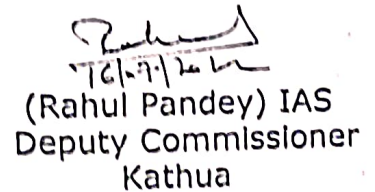 (Rahul Pandey) IAS
Deputy Commissioner
Kathua